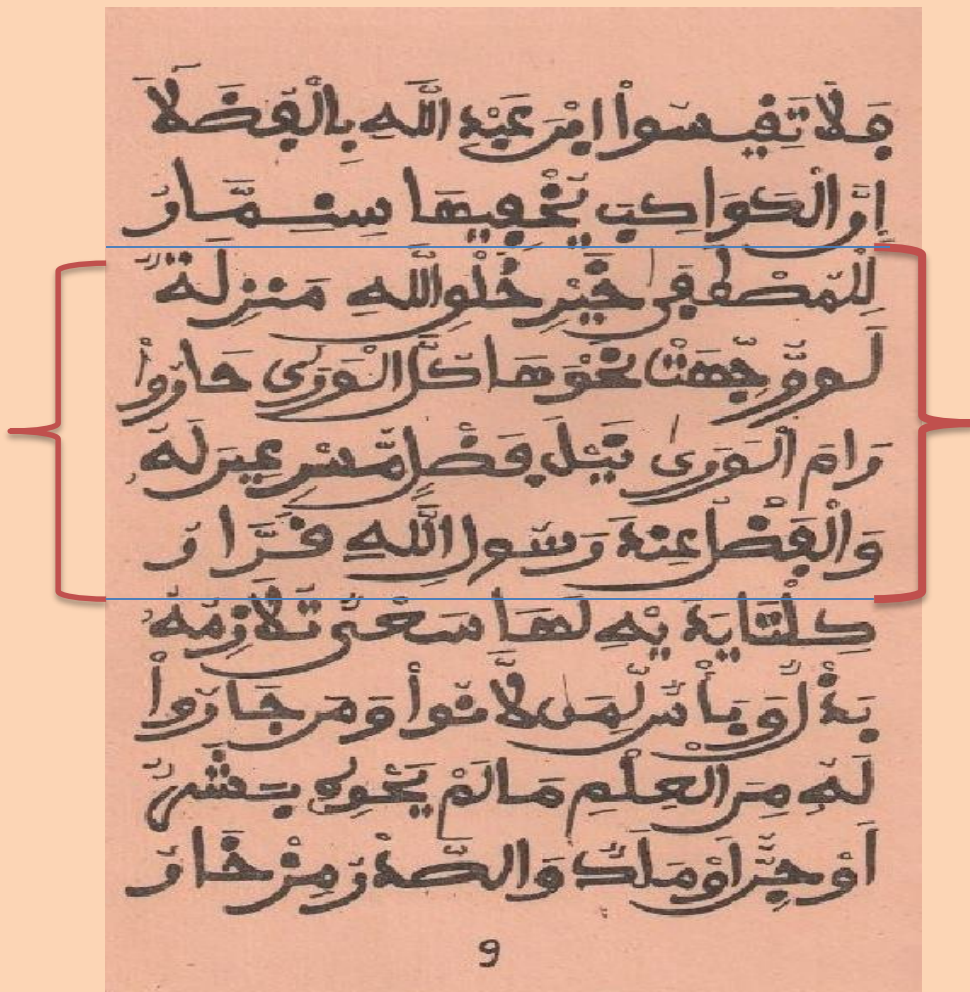 فَلَا تَقِيسُوا ابْنَ عَبْدِ اللَّهِ بِالْفُضَلَا
إِنَّ الْكَوَاكِبَ تُخْفِيهَا سِنِمَّارُ
لِلْمُصْطَفَى خَيْرِ خَلْقِ اللَّهِ مَنْزِلَةٌ
لَوْ وُجِّهَتْ نَحْوَهَا كُلُّ الْوَرَى حَارُوا
رَامَ الْوَرَى نَيْلَ فَضْلٍ مُّسْرِعِينَ لَهُ
وَالْفَضْلُ عِنْدَ رَسُولِ اللَّهِ قَرَّارُ
كِلْتَا يَدَيْهِ لَهَا تُلَازِمُهُ
بَذْلٌ وَبَأْسٌ لِّمَن لَّانُوا وَمَن جَارُوا
لَهُ مِنَ الْعِلْمِ مَا لَمْ يَحْوِهِ بَشَرٌ
أَوْ جِنٌّ أَوْ مَلَكٌ وَالصَّدْرُ مِزْخَارُ
9